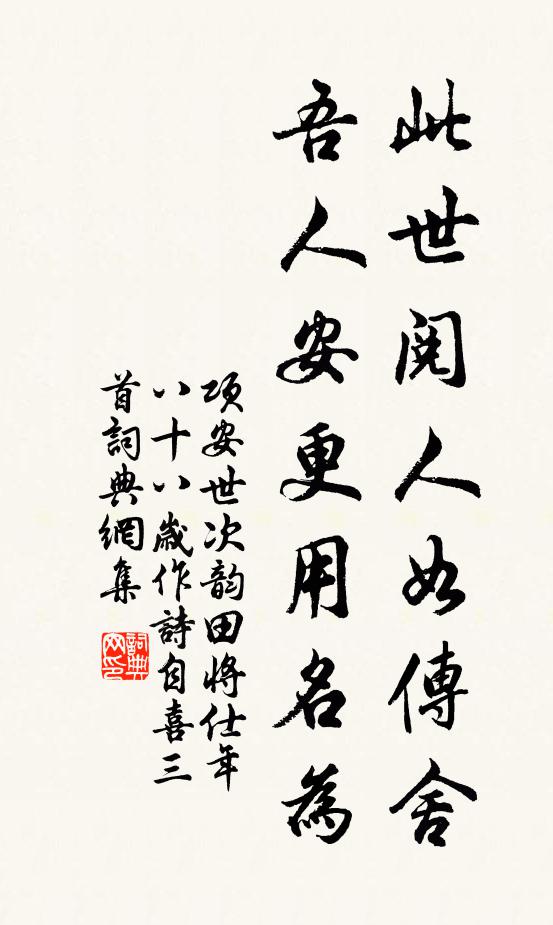 此世閱人如傳舍
吾人安更用名為
項安世次韵田將仕年
八十八歲作詩自喜三
首詞典網集
詞典
网印